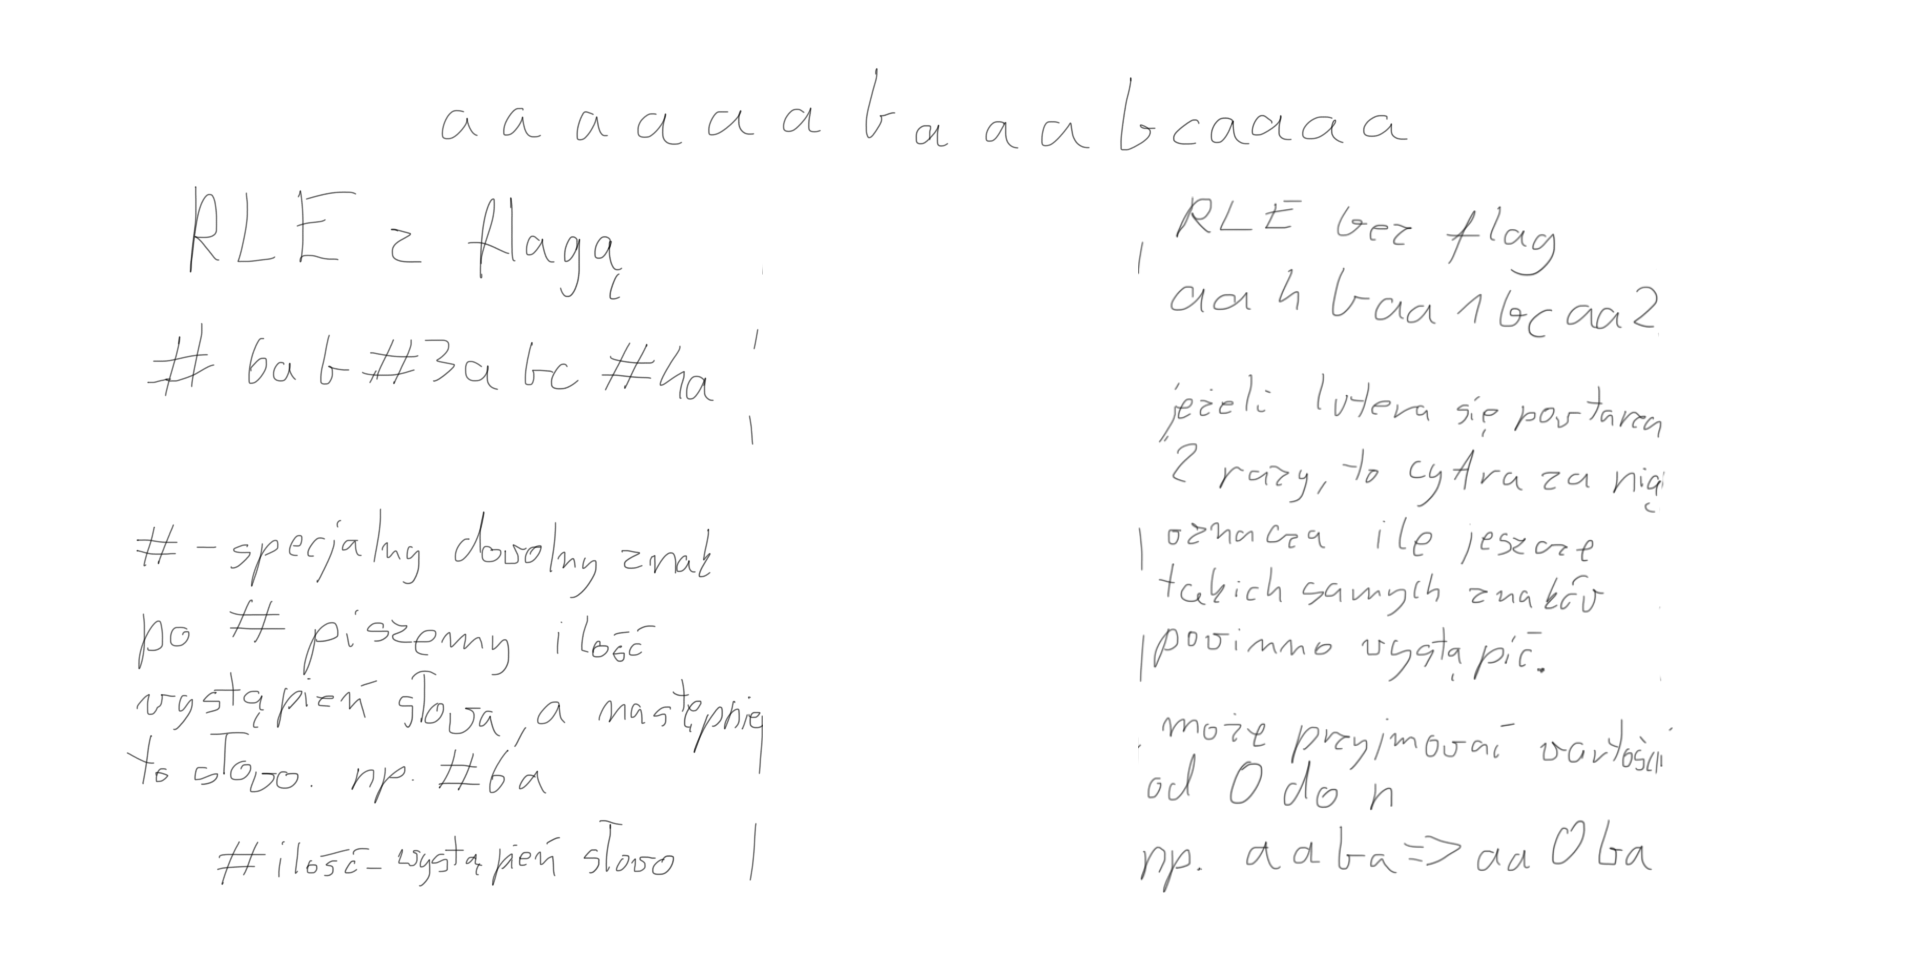 aaaaaabaaabcaaaa
RLE z flagą
#6ab#3abc#4a
#-specjalny dowolny znak
po # piszemy ilość
wystąpień słowa, a następnie
to słowo. np. #6a
#ilość_wystąpień słowo
RLE bez flag
aa4baa1bcaa2
jeżeli lutera się powtarza
2 razy, to cyfra za nią
oznacza ile jeszcze
takich samych znaków
powinno wystąpić.
może przyjmować wartości
od 0 do n
np. aaba=>aa0ba